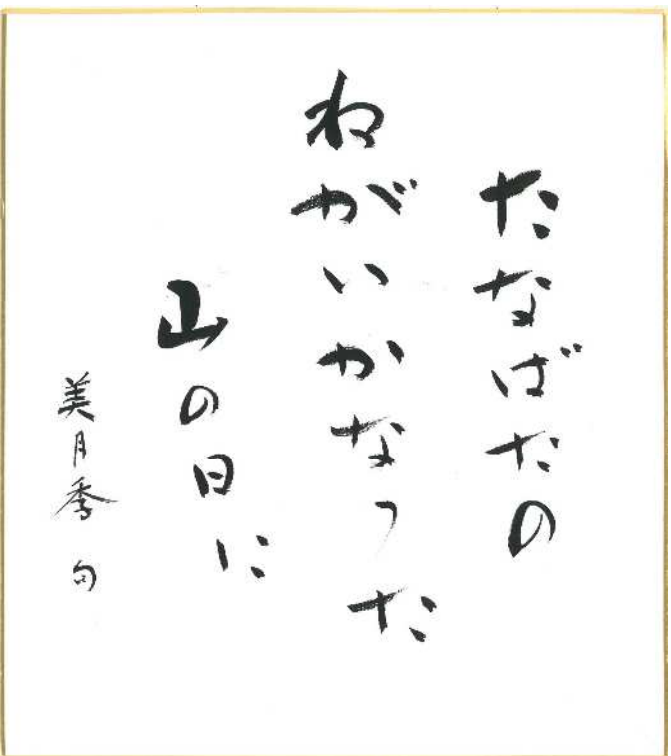 たなばたの
ねがいかなった
山の日に
美月季 句